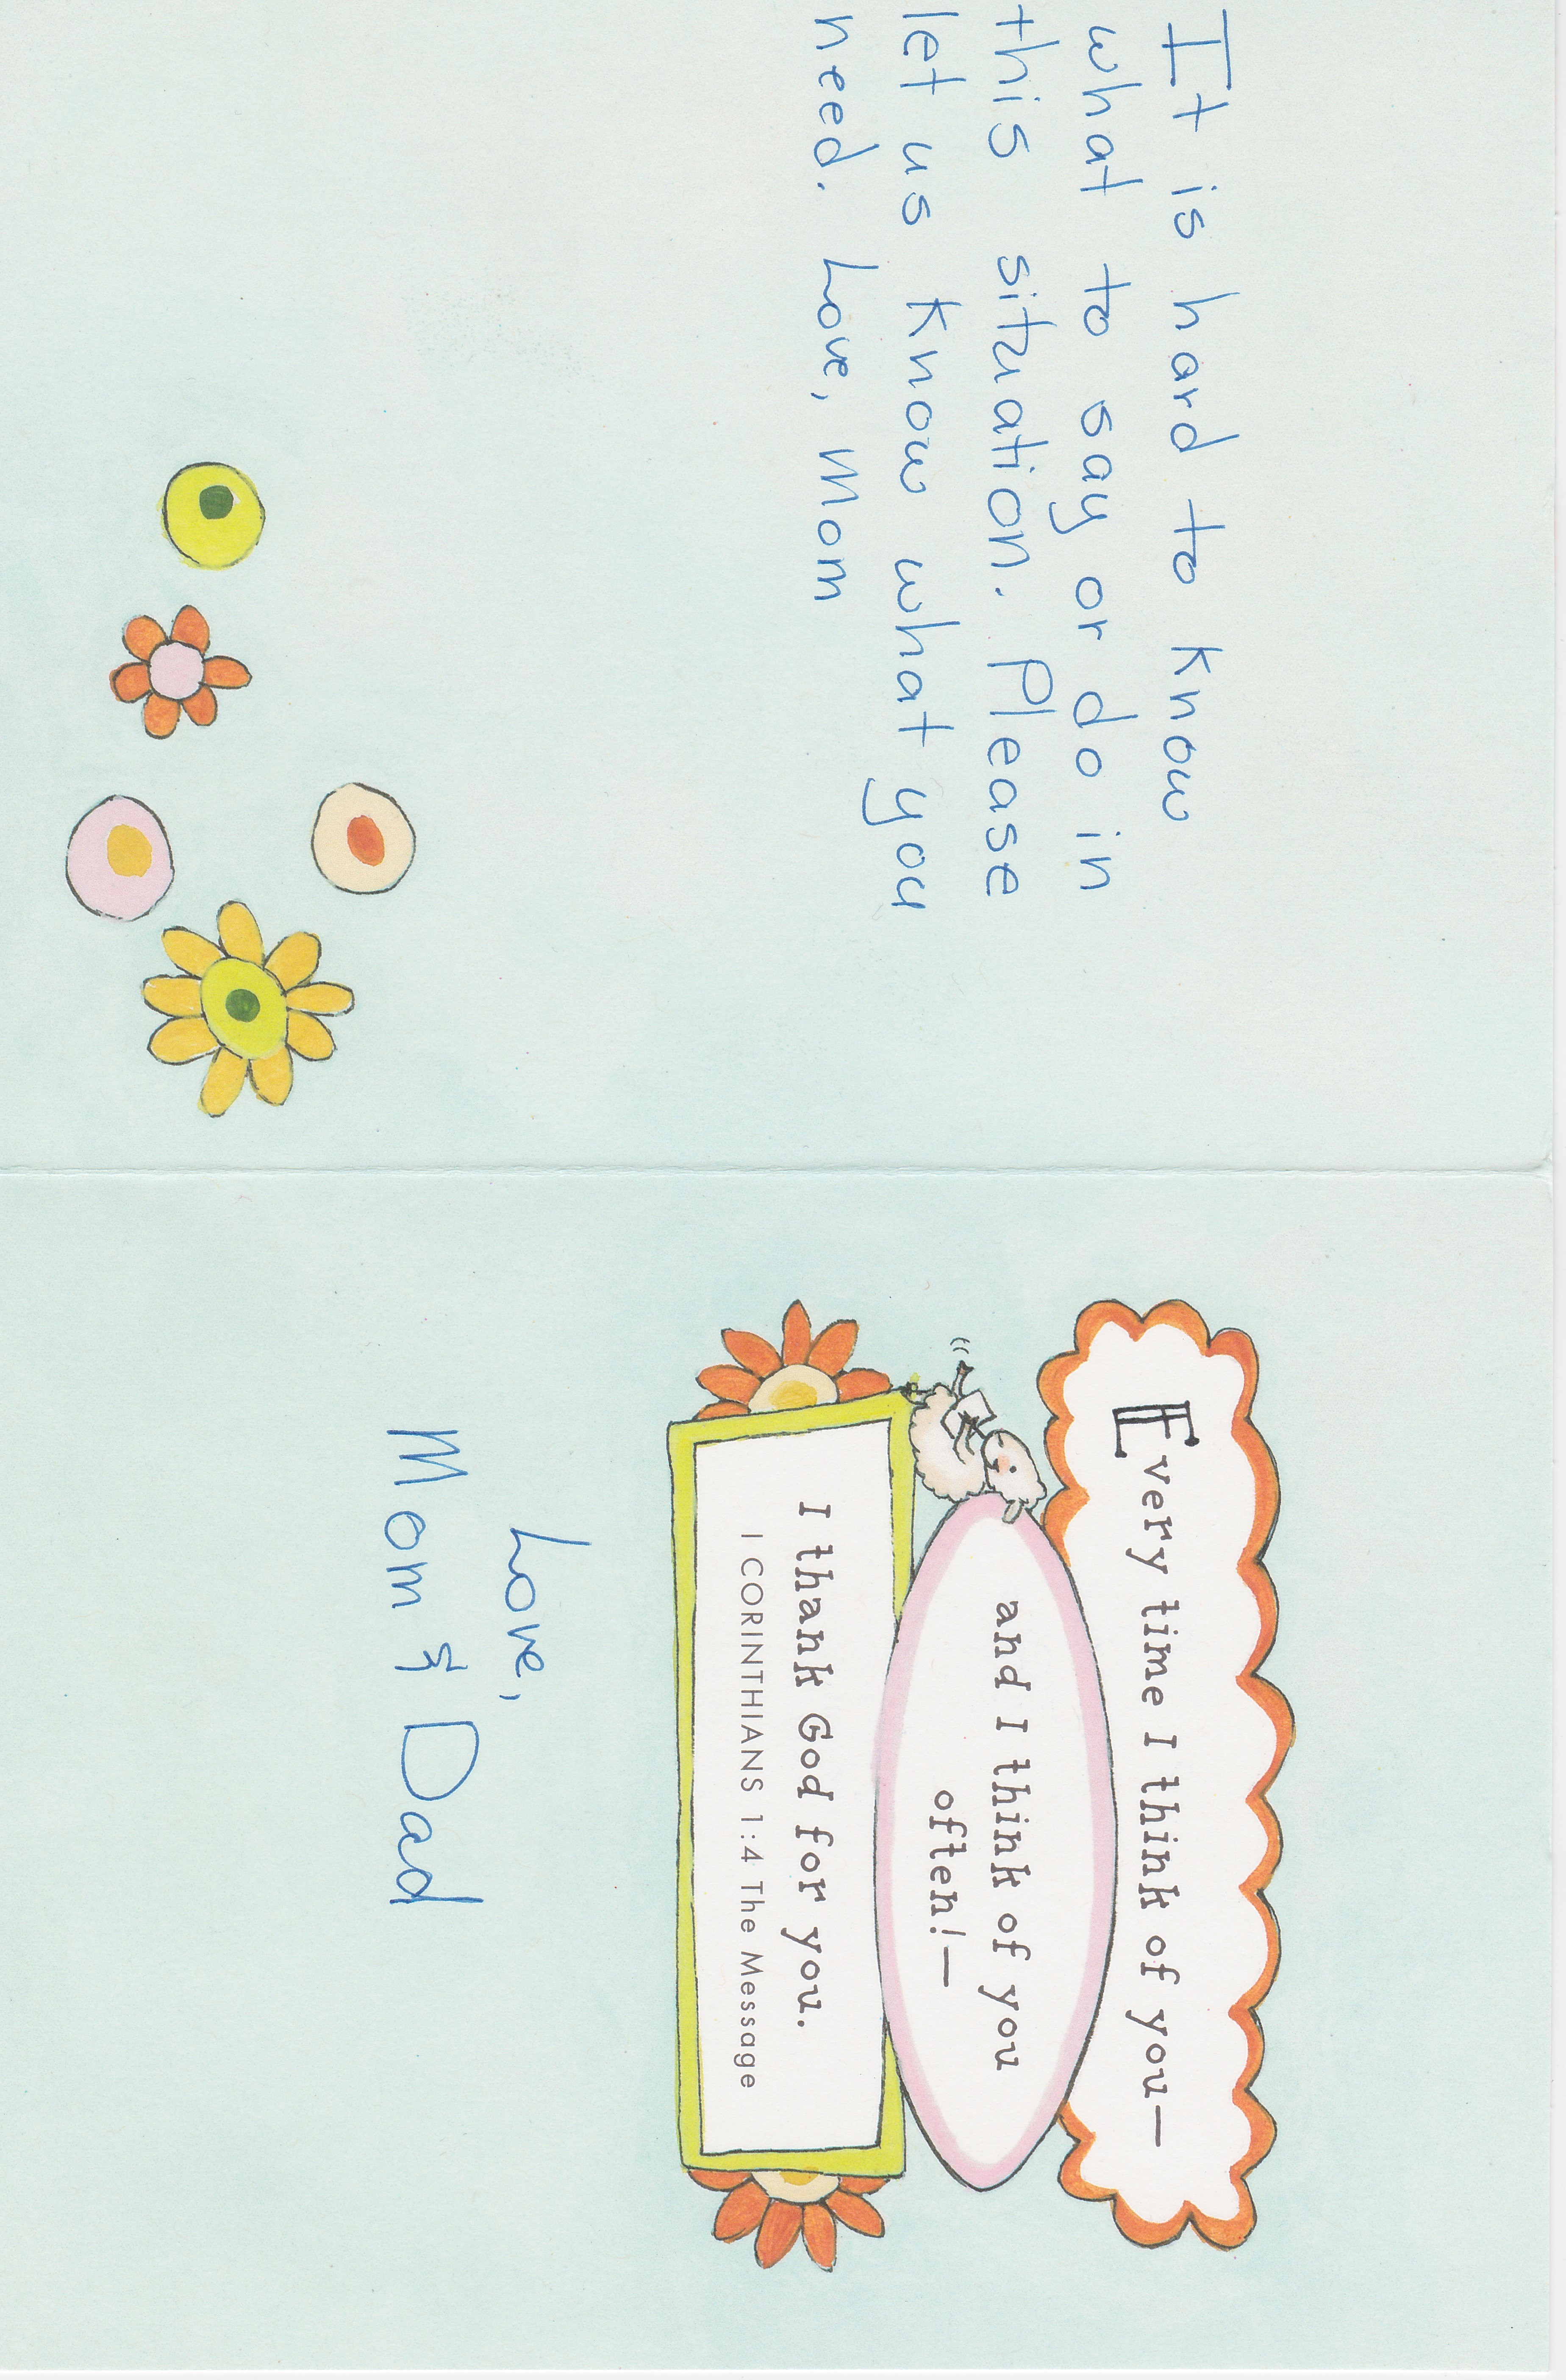 It is hard to know
what to say or do in
this situation. Please
let us know what you
need. Love, Mom
Every time I think of you—
and I think of you
often!—
I thank God for you.
I CORINTHIANS 1:4 The Message
Love,
Mom & Dad